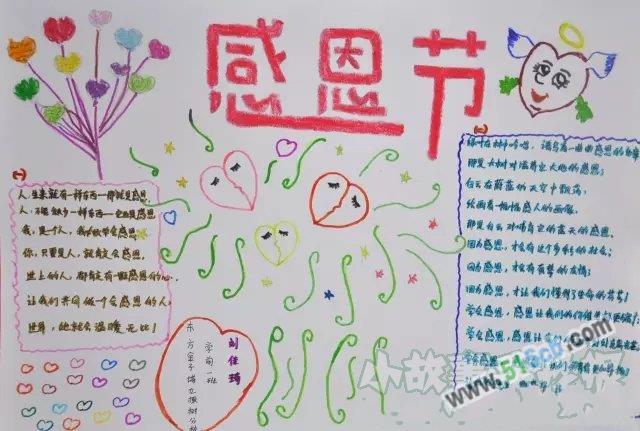 感恩节
人,生来就有一样东西一那就是感恩,
人,不能缺少一样东西一它也是感恩
我,是个人,我所以学会感恩
你,只要是人,就有会感恩
世上的人,都有一颗感恩的心,
让我们共同做一个会感恩的人,
世界,他就会温暖无比!
绿叶在树
那是大树对滋养它大地的感恩,
白云在蔚蓝的天空中飘荡,
绘画着一幅幅感人的画面,
那是白云对哺育它的蓝天的感恩,
因为感恩,才会有这个多彩的社会;
因为感恩,才会有真挚的友情;
因为感恩,才让我们懂得了生命的真谛!
学会感恩,感恩让我们的
学会感恩,感恩让
学会感恩
刘佳琦
学前一班
东方金子塔
www.516cb.com
小故事